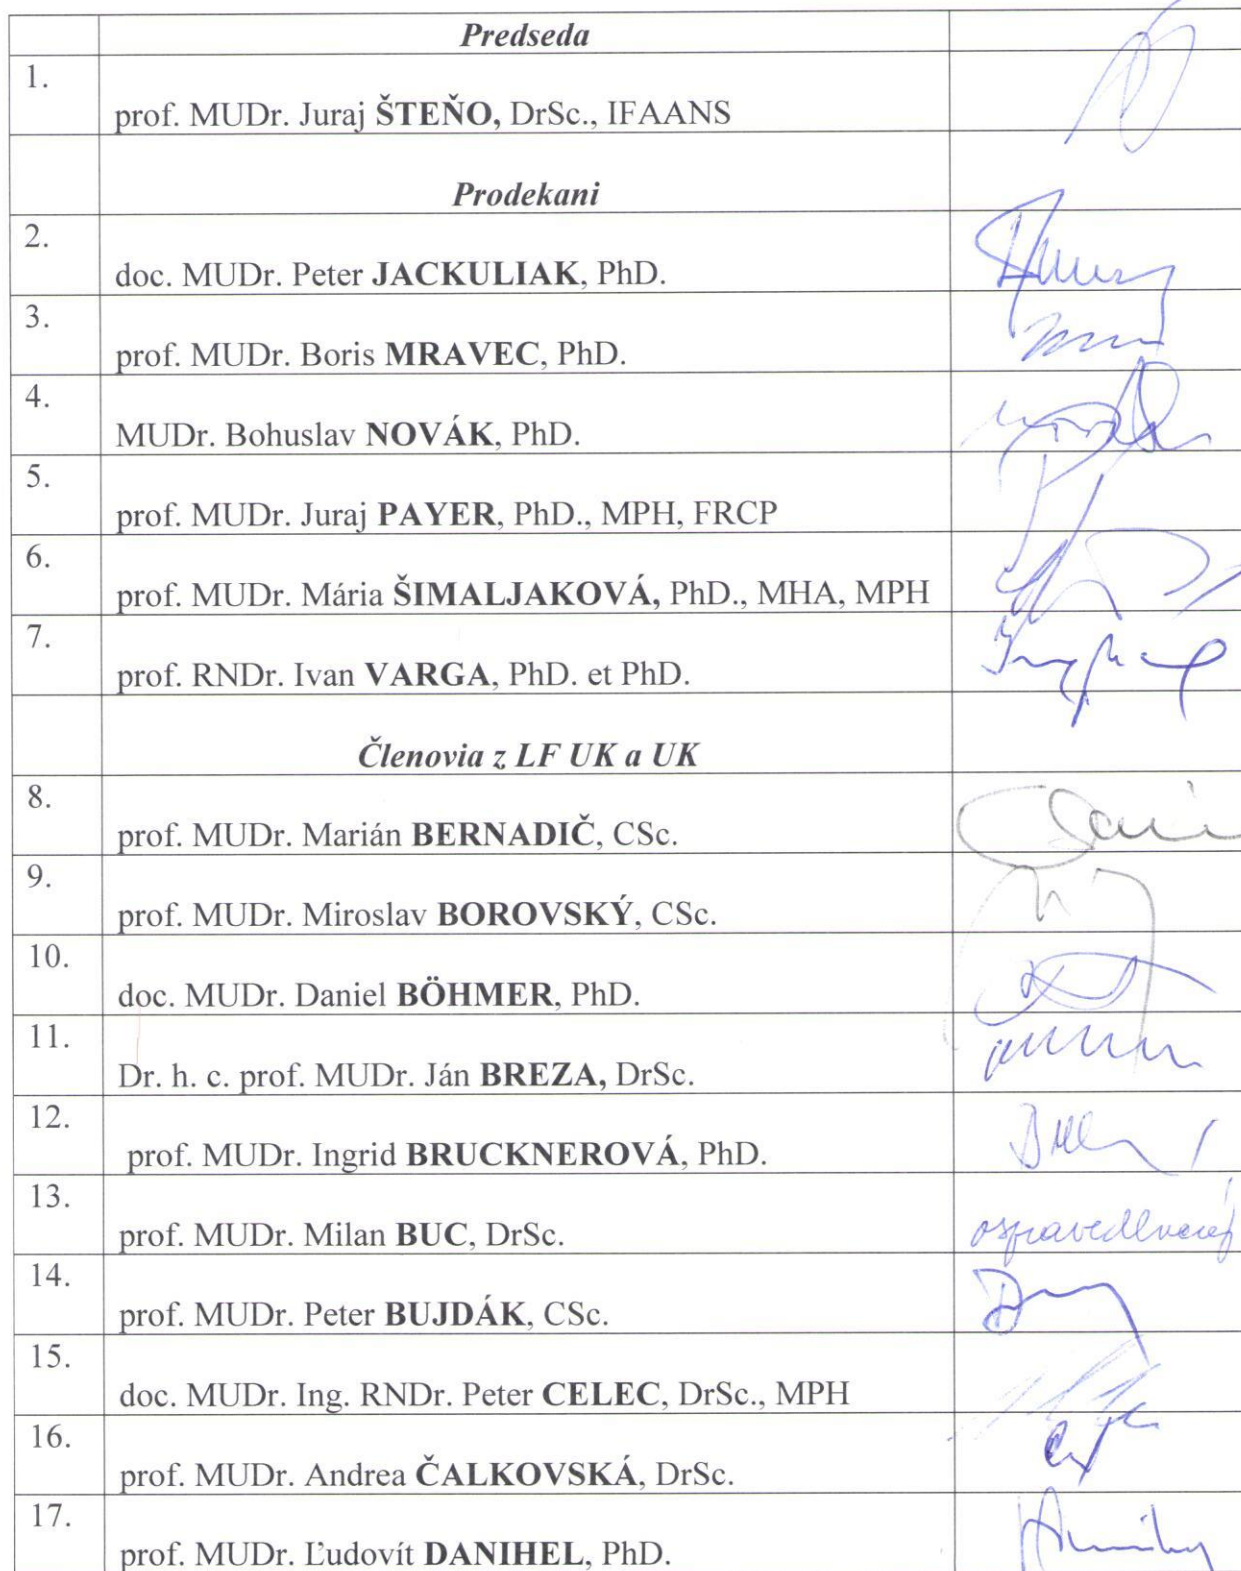 Predseda
1.
prof. MUDr. Juraj ŠTEŇO, DrSc., IFAANS
Prodekani
2.
doc. MUDr. Peter JACKULIAK, PhD.
3.
prof. MUDr. Boris MRAVEC, PhD.
4.
MUDr. Bohuslav NOVÁK, PhD.
5.
prof. MUDr. Juraj PAYER, PhD., MPH, FRCP
6.
prof. MUDr. Mária ŠIMALJAKOVÁ, PhD., MHA, MPH
7.
prof. RNDr. Ivan VARGA, PhD. et PhD.
Členovia z LF UK a UK
8.
prof. MUDr. Marián BERNADIČ, CSc.
9.
prof. MUDr. Miroslav BOROVSKÝ, CSc.
10.
doc. MUDr. Daniel BÖHMER, PhD.
11.
Dr. h. c. prof. MUDr. Ján BREZA, DrSc.
12.
prof. MUDr. Ingrid BRUCKNEROVÁ, PhD.
13.
prof. MUDr. Milan BUC, DrSc. ospravedlnený
14.
prof. MUDr. Peter BUJDÁK, CSc.
15.
doc. MUDr. Ing. RNDr. Peter CELEC, DrSc., MPH
16.
prof. MUDr. Andrea ČALKOVSKÁ, DrSc.
17.
prof. MUDr. Ľudovít DANIHEL, PhD.